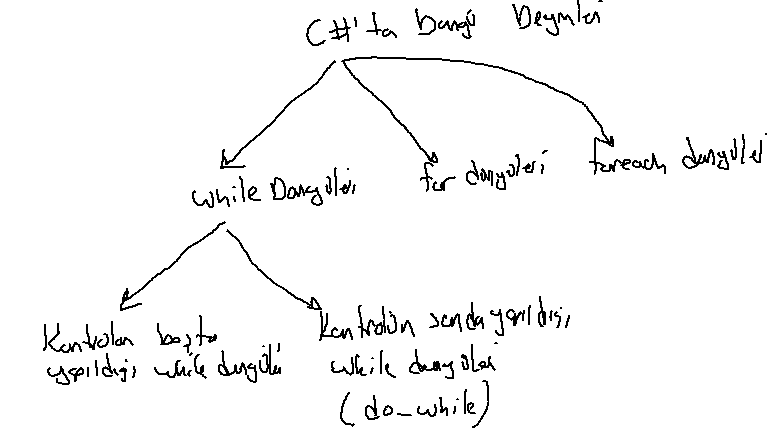 C#'ta Döngü Deyimleri
while Döngüleri
for döngüleri
foreach döngüleri
Kontrolün başta
yapıldığı while döngüleri
Kontrolün sonda yapıldığı
while döngüleri
(do_while)